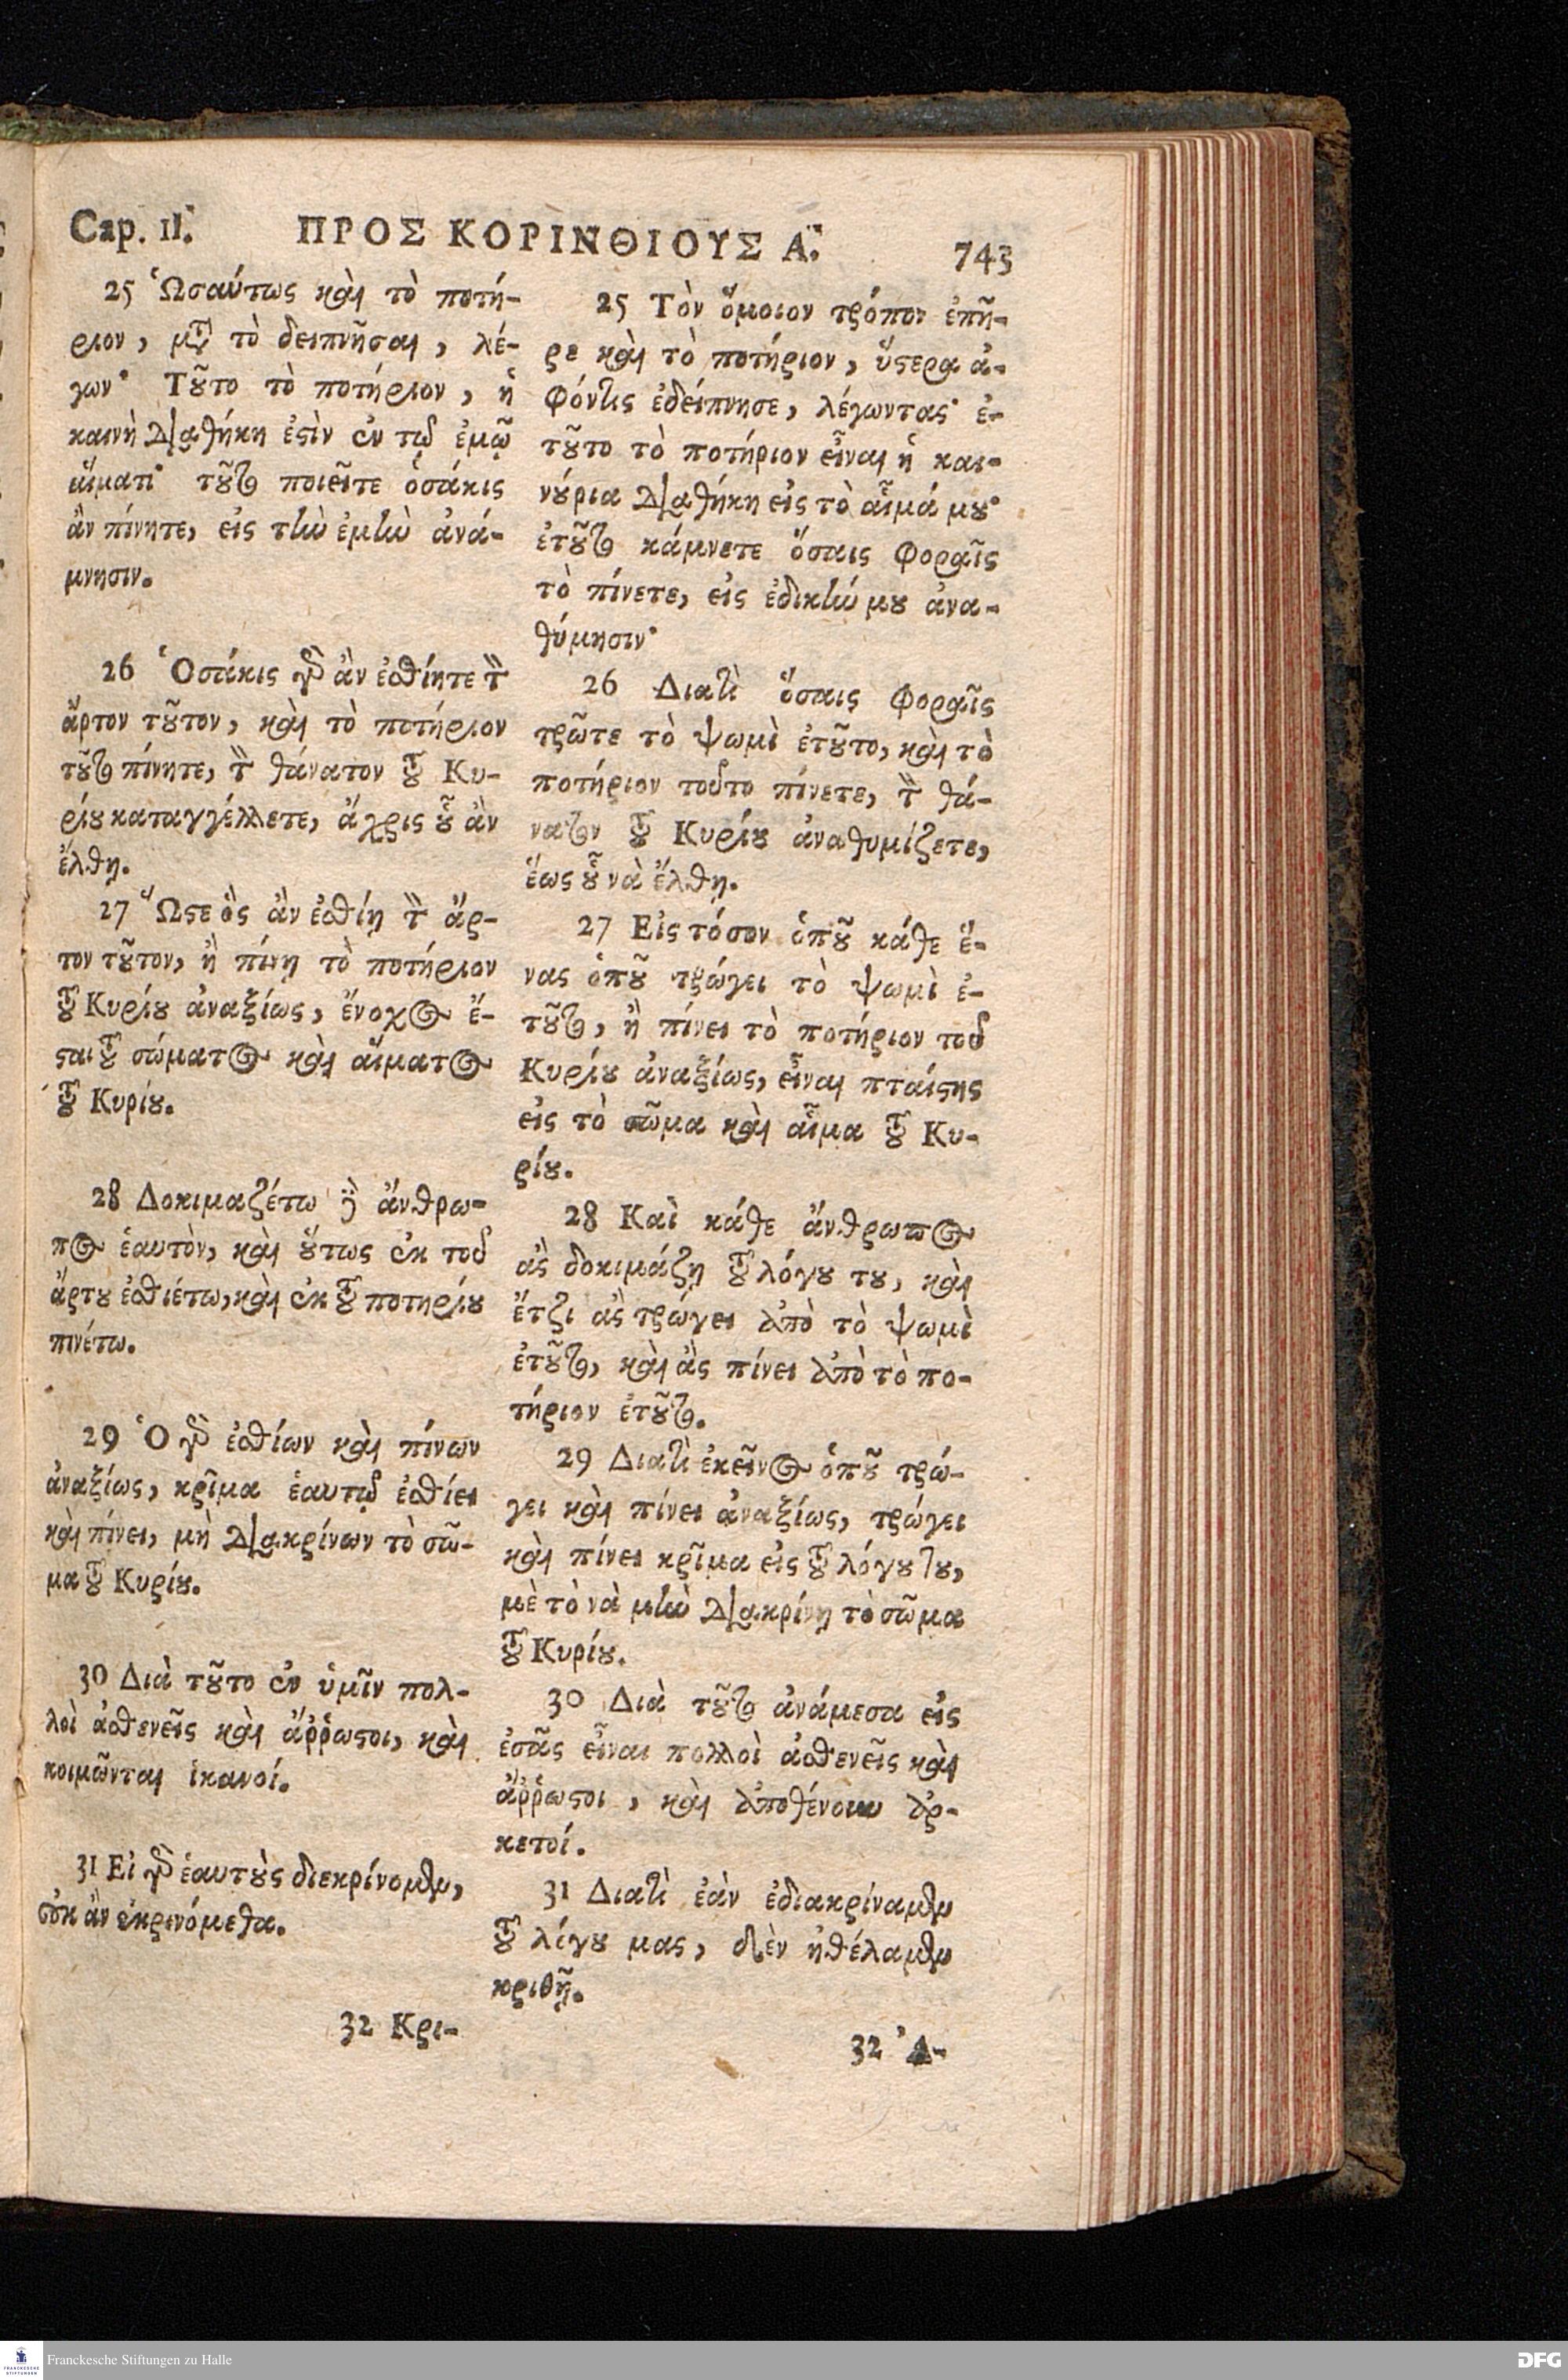 Cap. 11.
ΠΡΟΣ ΚΟΡΙΝΘΙΟΥΣ Α.
743
25 Ὡσαύτως καὶ τὸ ποτή-
ριον, μτ̃ τὸ δειπνῆσαι, λέ-
γων· Τȣ͂το τὸ ποτήριον, ἡ
καινὴ Διαθήκη ἐϛὶν ἐν τῷ ἐμῷ
αἵματι· τȣ͂το ποιεῖτε ὁσάκις
ἂν πίνητε, εἰς τὴν ἐμὴν ἀνά-
μνησιν.
26 Ὁσάκις γὰρ ἂν ἐσθίητε τὸν
ἄρτον τȣ͂τον, καὶ τὸ ποτήριον
τȣ͂το πίνητε, τὸν θάνατον τȣ͂ Κυ-
ρίȣ καταγγέλλετε, ἄχρις ȣ͗͂ ἂν
ἔλθῃ.
27 Ὥϛε ὃς ἂν ἐσθίῃ τὸν ἄρ-
τον τȣ͂τον, ἢ πίνῃ τὸ ποτήριον
τȣ͂ Κυρίȣ ἀναξίως, ἔνοχος ἔ-
ϛαι τȣ͂ σώματος καὶ αἵματος
τȣ͂ Κυρίȣ.
28 Δοκιμαζέτω δὲ ἄνθρω-
πος ἑαυτὸν, καὶ ȣ͕́τως ἐκ τοῦ
ἄρτȣ ἐσθιέτω, καὶ ἐκ τȣ͂ ποτηρίȣ
πινέτω.
29 Ὁ γὰρ ἐσθίων καὶ πίνων
ἀναξίως, κρῖμα ἑαυτῷ ἐσθίει
καὶ πίνει, μὴ Διακρίνων τὸ σῶ-
μα τȣ͂ Κυρίȣ.
30 Διὰ τȣ͂το ἐν ὑμῖν πολ-
λοὶ ἀσθενεῖς καὶ ἄῤῥωϛοι, καὶ
κοιμῶνται ἱκανοί.
31 Εἰ γὰρ ἑαυτȣ̀ς διεκρίνομεν,
οὐκ ἂν ἐκρινόμεθα.
32 Κρι-
25 Τὸν ὅμοιον τρόπον ἐπῆ-
ρε καὶ τὸ ποτήριον, ὕϛερα ἀ-
φόντις ἐδείπνησε, λέγωντας· ἐ-
τȣ͂το τὸ ποτήριον εἶναι ἡ και-
νȣ́ρια Διαθήκη εἰς τὸ αἷμά μȣ·
ἐτȣ͂το κάμνετε ὅσαις φοραῖς
τὸ πίνετε, εἰς ἐδικήν μȣ ἀνα-
θύμησιν·
26 Διατὶ ὅσαις φοραῖς
τρῶτε τὸ ψωμὶ ἐτȣ͂το, καὶ τὸ
ποτήριον τοῦτο πίνετε, τὸν θά-
νατον τȣ͂ Κυρίȣ ἀναθυμίζετε,
ἕως ȣ͗͂ νὰ ἔλθῃ.
27 Εἰς τόσον ὁπȣ͂ κάθε ἕ-
νας ὁπȣ͂ τρώγει τὸ ψωμὶ ἐ-
τȣ͂το, ἢ πίνει τὸ ποτήριον τοῦ
Κυρίȣ ἀναξίως, εἶναι πταίϛης
εἰς τὸ σῶμα καὶ αἷμα τȣ͂ Κυ-
ρίȣ.
28 Καὶ κάθε ἄνθρωπος
ἂς δοκιμάζῃ τȣ͂ λόγȣ τȣ, καὶ
ἔτζι ἂς τρώγει ἀπὸ τὸ ψωμὶ
ἐτȣ͂το, καὶ ἂς πίνει ἀπὸ τὸ πο-
τήριον ἐτȣ͂το.
29 Διατὶ ἐκεῖνος ὁπȣ͂ τρώ-
γει καὶ πίνει ἀναξίως, τρώγει
καὶ πίνει κρῖμα εἰς τȣ͂ λόγȣ τȣ,
μὲ τὸ νὰ μὴν Διακρίνῃ τὸ σῶμα
τȣ͂ Κυρίȣ.
30 Διὰ τȣ͂το ἀνάμεσα εἰς
ἐσᾶς εἶναι πολλοὶ ἀσθενεῖς καὶ
ἄῤῥωϛοι, καὶ ἀποθένουν ἀρ-
κετοί.
31 Διατὶ ἐὰν ἐδιακρίναμεν
τȣ͂ λόγȣ μας, δὲν ἠθέλαμεν
κριθῆ.
32 Ἀ-
Franckesche Stiftungen zu Halle
FRANCKESCHE STIFTUNGEN
DFG